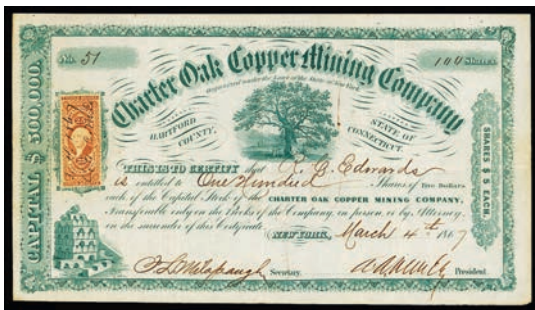 No. 51
100 Shares
Charter Oak Copper Mining Company
Organized under the Laws of the State of New York
HARTFORD COUNTY,
STATE OF CONNECTICUT.
CAPITAL $ 500,000.
SHARES $ 5 EACH.
THIS IS TO CERTIFY that Edwards
is entitled to One Hundred Shares of Five Dollars
each, of the Capital Stock of the CHARTER OAK COPPER MINING COMPANY,
Transferable only on the Books of the Company, in person, or by Attorney,
on the surrender of this Certificate.
NEW YORK, March 4th 1867
Secretary.
President.